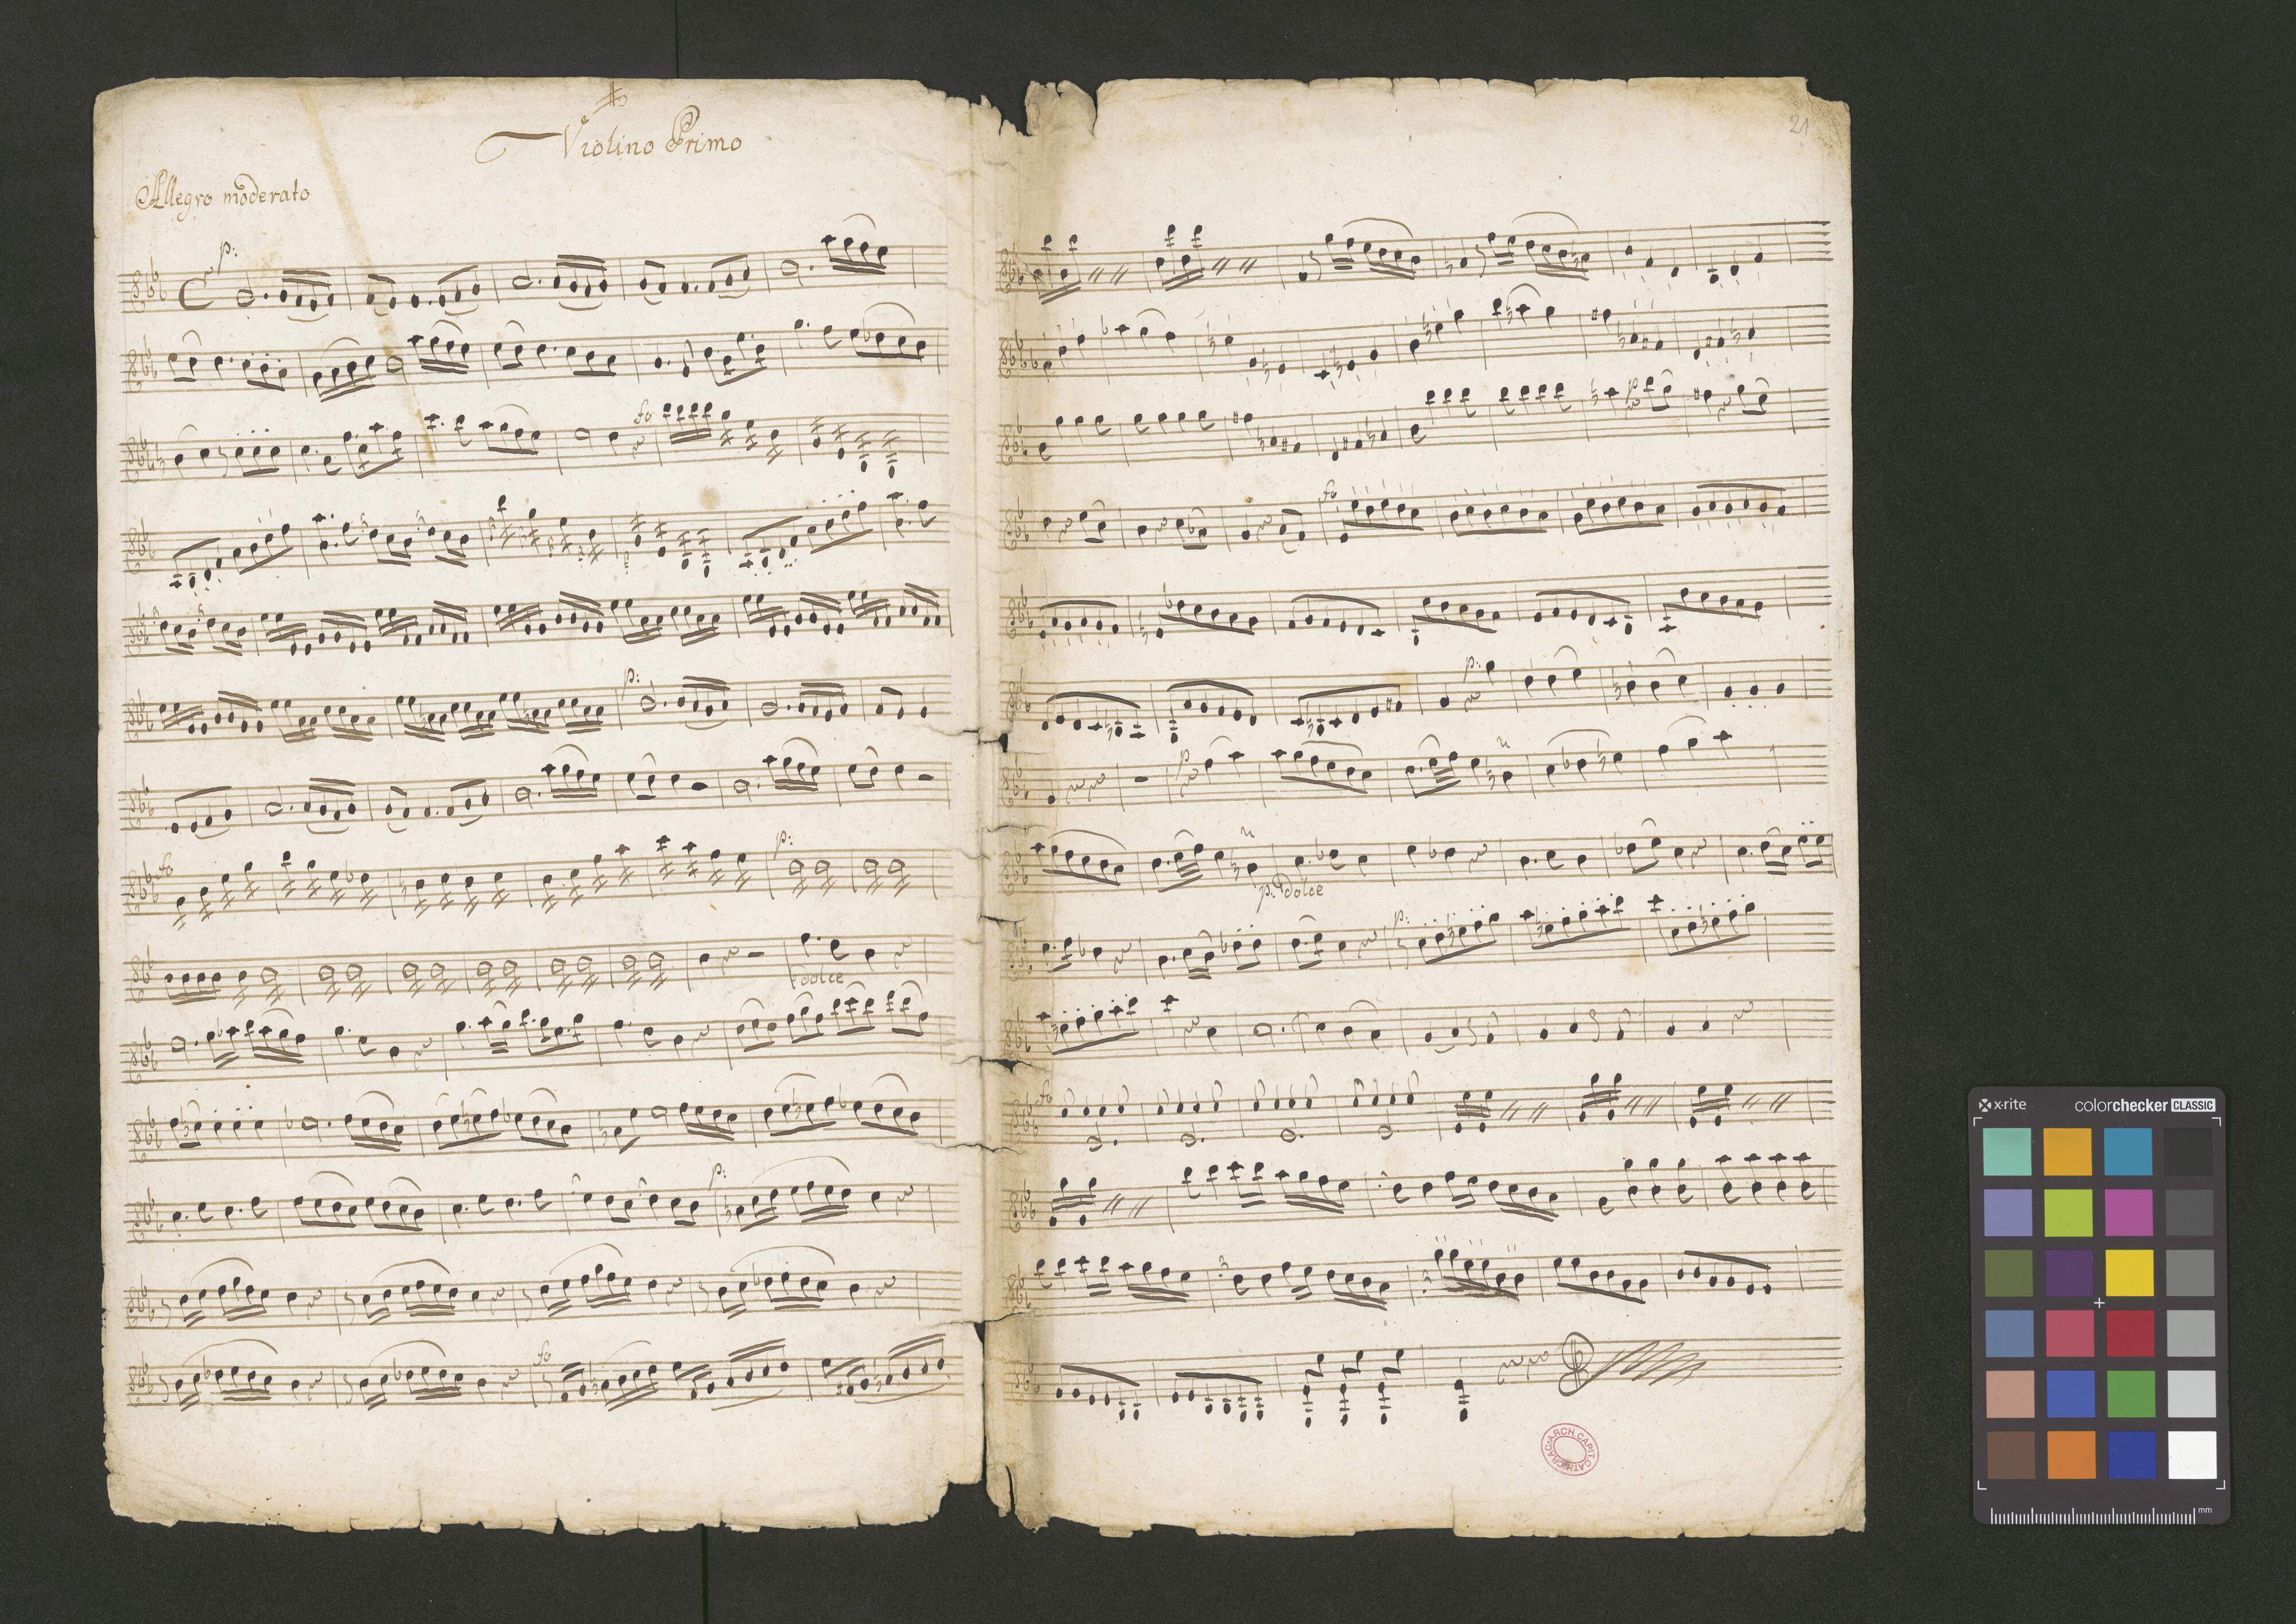 Violino Primo
Allegro moderato
p:
fo
p:
fo
p:
dolce
p:
fo
21
p
fo
p:
p
p: dolce
p:
fo
ARCH. CAPIT. CATH. CRAC.
x·rite colorchecker CLASSIC
mm